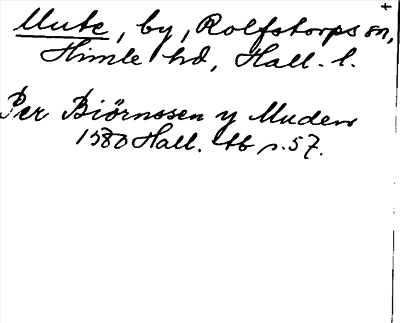 Mute, by, Rolfstorps sn,
Himle hd, Hall. l.
Per Biörnssen y Muden
1580 Hall. tb s. 57.